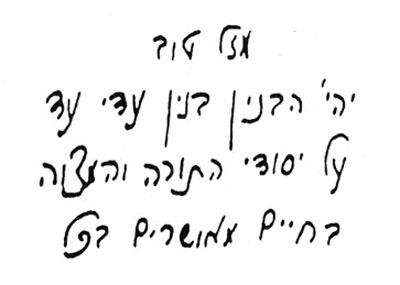 מזל טוב
יהי' הבנין בנין עדי עד
על יסודי התורה והמצוה
בחיים מאושרים בכל